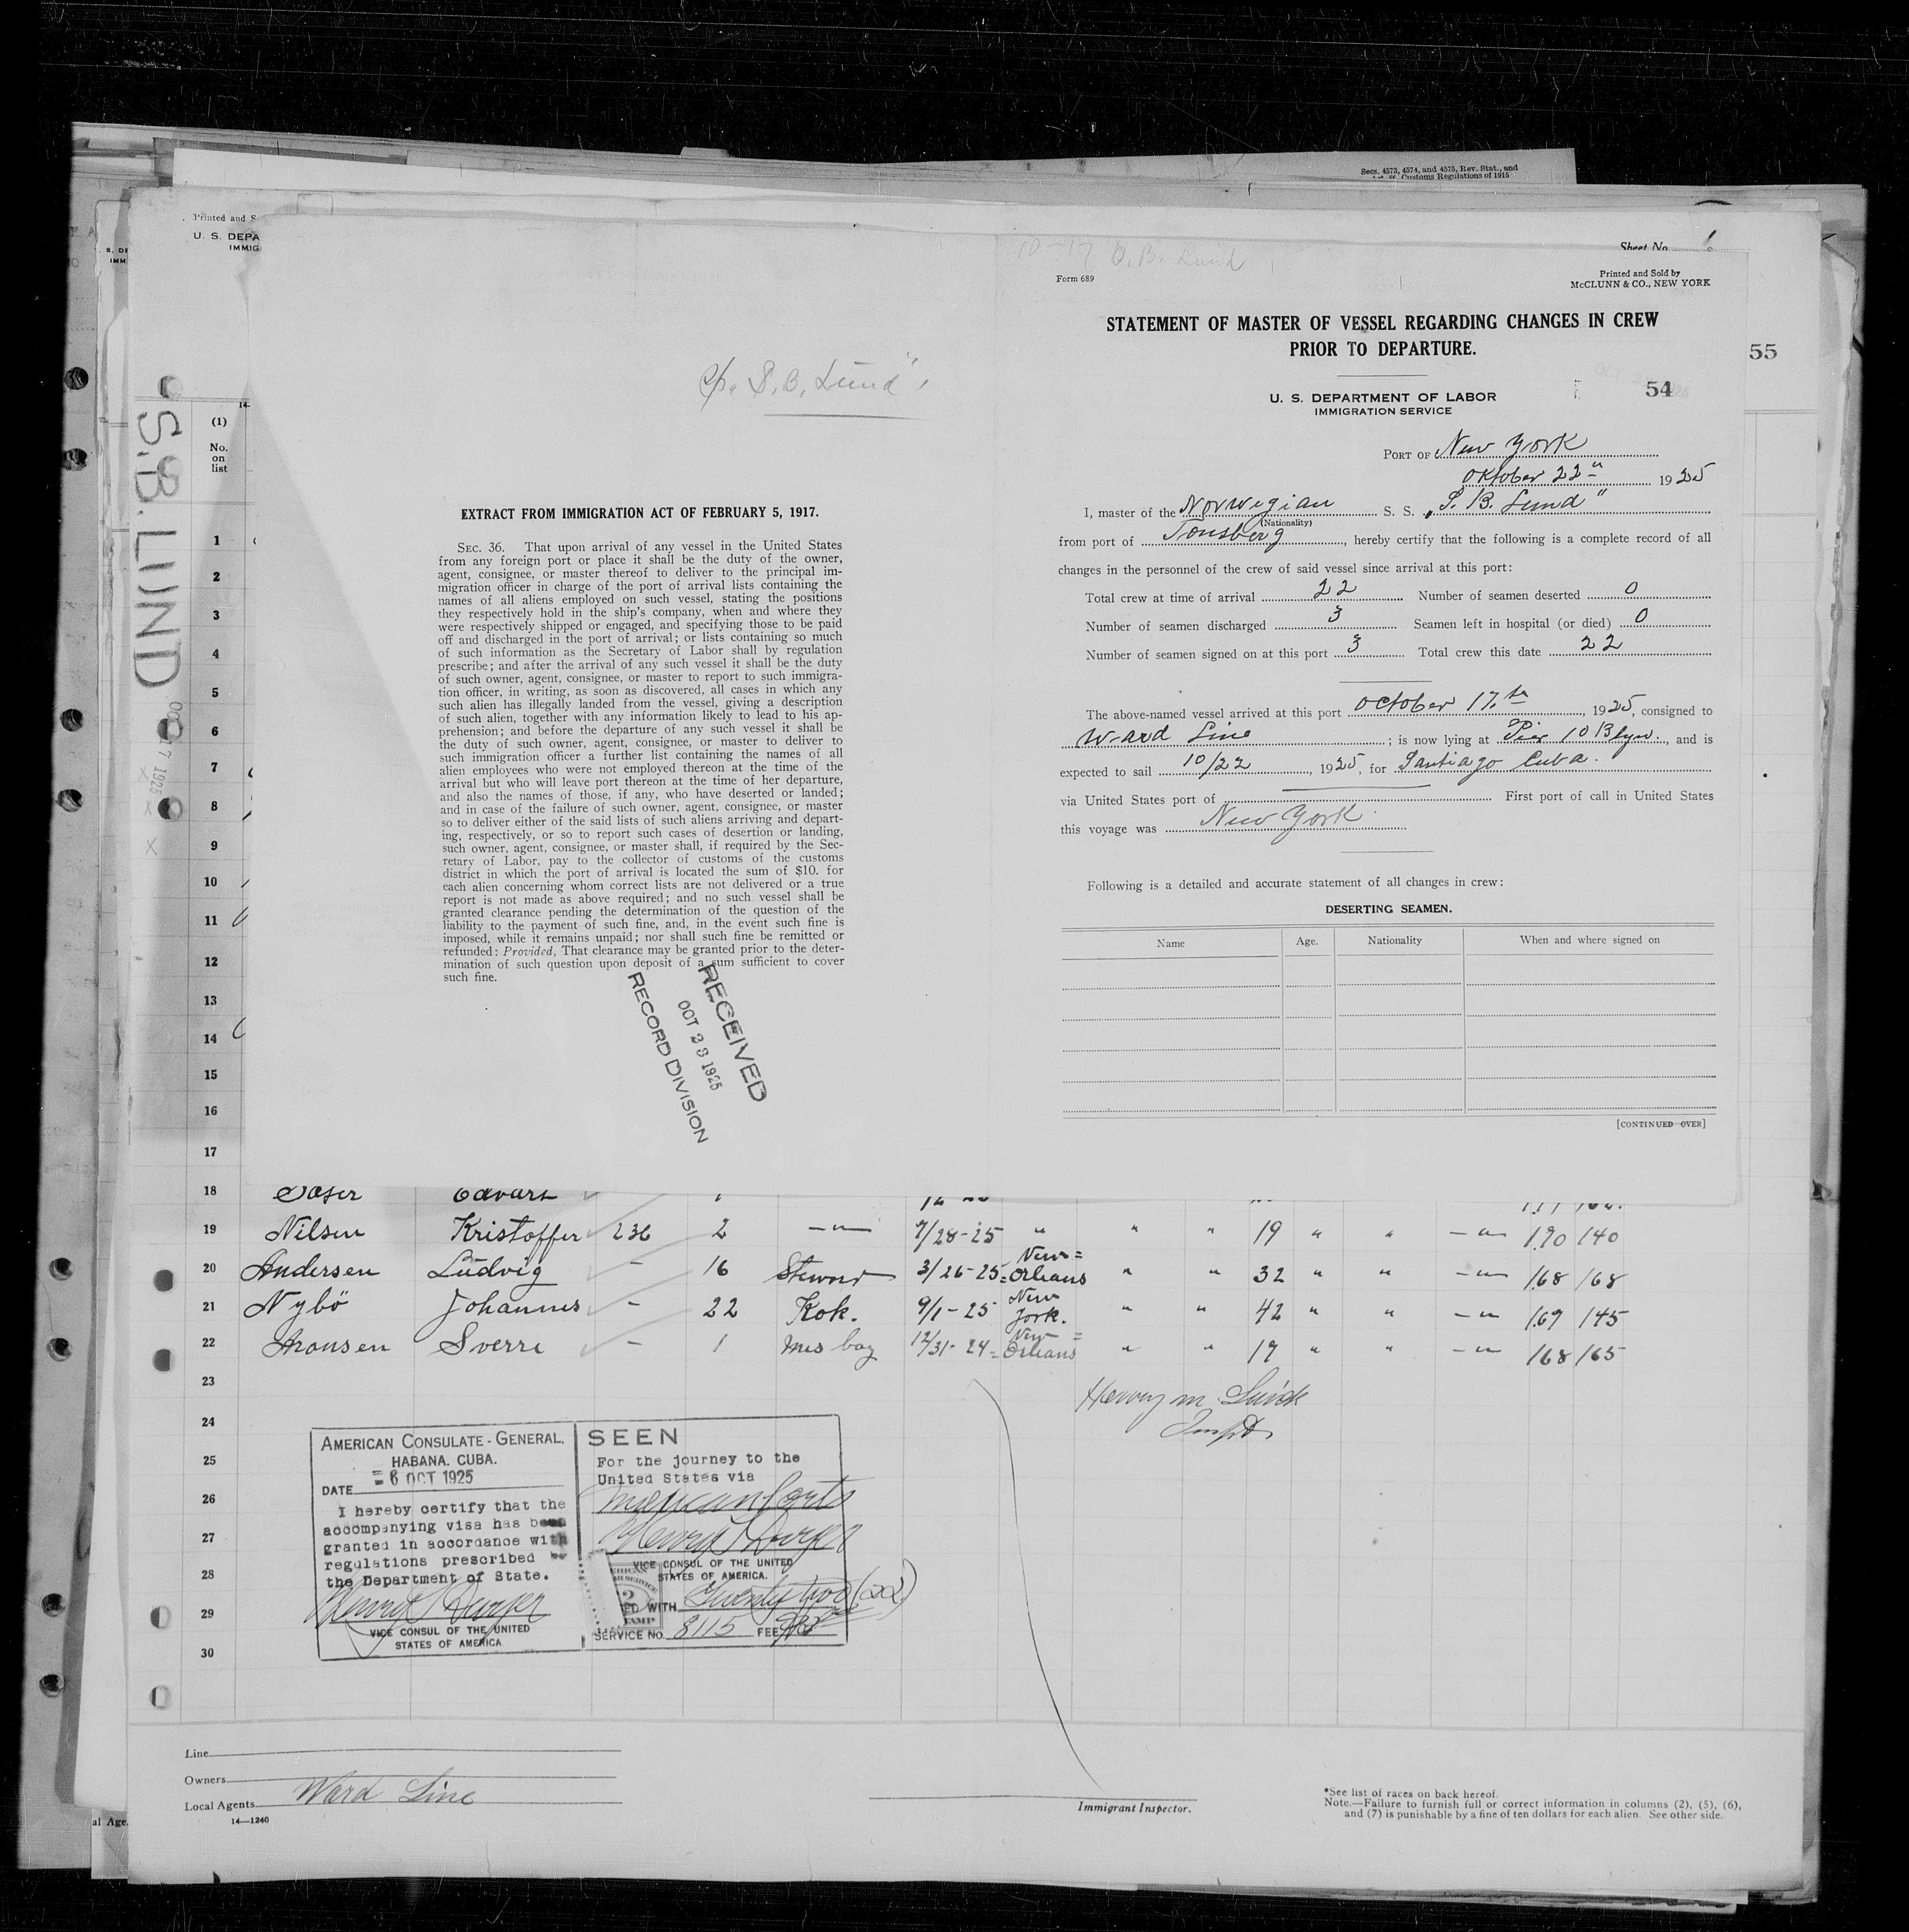 Secs. 4573, 4574, and 4575, Rev. Stat., and
Customs Regulations of 1915
Printed and S
U. S. DEPA
IMMIG
S. DE
IMM
Sheet No. 1
55
(1)
No.
on
list
S.B. LUND
OCT 17 1925
1
2
3
4
5
6
7
8
9
10
11
12
13
14
15
16
17
S.B. Lund"
EXTRACT FROM IMMIGRATION ACT OF FEBRUARY 5, 1917.
SEC. 36. That upon arrival of any vessel in the United States
from any foreign port or place it shall be the duty of the owner,
agent, consignee, or master thereof to deliver to the principal im-
migration officer in charge of the port of arrival lists containing the
names of all aliens employed on such vessel, stating the positions
they respectively hold in the ship's company, when and where they
were respectively shipped or engaged, and specifying those to be paid
off and discharged in the port of arrival; or lists containing so much
of such information as the Secretary of Labor shall by regulation
prescribe; and after the arrival of any such vessel it shall be the duty
of such owner, agent, consignee, or master to report to such immigra-
tion officer, in writing, as soon as discovered, all cases in which any
such alien has illegally landed from the vessel, giving a description
of such alien, together with any information likely to lead to his ap-
prehension; and before the departure of any such vessel it shall be
the duty of such owner, agent, consignee, or master to deliver to
such immigration officer a further list containing the names of all
alien employees who were not employed thereon at the time of the
arrival but who will leave port thereon at the time of her departure,
and also the names of those, if any, who have deserted or landed;
and in case of the failure of such owner, agent, consignee, or master
so to deliver either of the said lists of such aliens arriving and depart-
ing, respectively, or so to report such cases of desertion or landing,
such owner, agent, consignee, or master shall, if required by the Sec-
retary of Labor, pay to the collector of customs of the customs
district in which the port of arrival is located the sum of $10. for
each alien concerning whom correct lists are not delivered or a true
report is not made as above required; and no such vessel shall be
granted clearance pending the determination of the question of the
liability to the payment of such fine, and, in the event such fine is
imposed, while it remains unpaid; nor shall such fine be remitted or
refunded: Provided, That clearance may be granted prior to the deter-
mination of such question upon deposit of a sum sufficient to cover
such fine.
RECEIVED
OCT 23 1925
RECORD DIVISION
10-17 S.B. Lund
Form 689
Printed and Sold by
McCLUNN & CO., NEW YORK
STATEMENT OF MASTER OF VESSEL REGARDING CHANGES IN CREW
PRIOR TO DEPARTURE.
54
U. S. DEPARTMENT OF LABOR
IMMIGRATION SERVICE
PORT OF New York
Oktober 22" 1925
I, master of the Norwegian S. S. „S. B. Lund"
(Nationality)
from port of Tonsberg, hereby certify that the following is a complete record of all
changes in the personnel of the crew of said vessel since arrival at this port:
Total crew at time of arrival 22 Number of seamen deserted 0
Number of seamen discharged 3 Seamen left in hospital (or died) 0
Number of seamen signed on at this port 3 Total crew this date 22
The above-named vessel arrived at this port October 17.th, 1925, consigned to
Ward Line; is now lying at Pier 10 Blyn., and is
expected to sail 10/22, 1925, for Santiago Cuba.
via United States port of First port of call in United States
this voyage was New York
Following is a detailed and accurate statement of all changes in crew:
DESERTING SEAMEN.
Name Age. Nationality When and where signed on
[CONTINUED OVER]
18 Edvart
19 Nilsen Kristoffer 236 2 —"— 7/28-25 " " " 19 " " —"— 1.70 140
20 Andersen Ludvig - 16 Steward 3/26-25= New=Orleans " " 32 " " —"— 1.68 168
21 Nybö Johannes - 22 Kok. 9/1-25 New York. " " 42 " " —"— 1.69 145
22 Aronsen Sverre - 1 Mes boy 12/31-24= New=Orleans " " 17 " " —"— 168 165
23
24
25
26
27
28
29
30
AMERICAN CONSULATE-GENERAL,
HABANA, CUBA.
DATE = 6 OCT 1925
I hereby certify that the
accompanying visa has been
granted in accordance with
regulations prescribed by
the Department of State.
VICE CONSUL OF THE UNITED
STATES OF AMERICA
SEEN
For the journey to the
United States via
Mexican ports
VICE CONSUL OF THE UNITED
STATES OF AMERICA.
WITH Twenty two (22)
SERVICE NO. 8115 FEE
Line
Owners
Local Agents Ward Line
14—1240
al Age
Immigrant Inspector.
*See list of races on back hereof.
Note.—Failure to furnish full or correct information in columns (2), (5), (6),
and (7) is punishable by a fine of ten dollars for each alien. See other side.